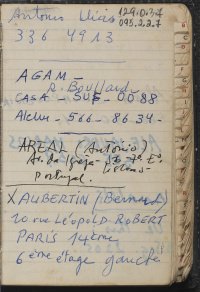 129.0.37
095.2.2.7
336 4913
AGAM -
R. Bouillard
CASA - SUF - 00.88
566 - 86 34 -
AREAL (António)
Av. da Igreja 3-7º Eº,
Lisboa
Portugal.
X AUBERTIN (Bernard)
10 rue LÉOPOLD ROBERT
PARIS 14ème
6ème étage gauche